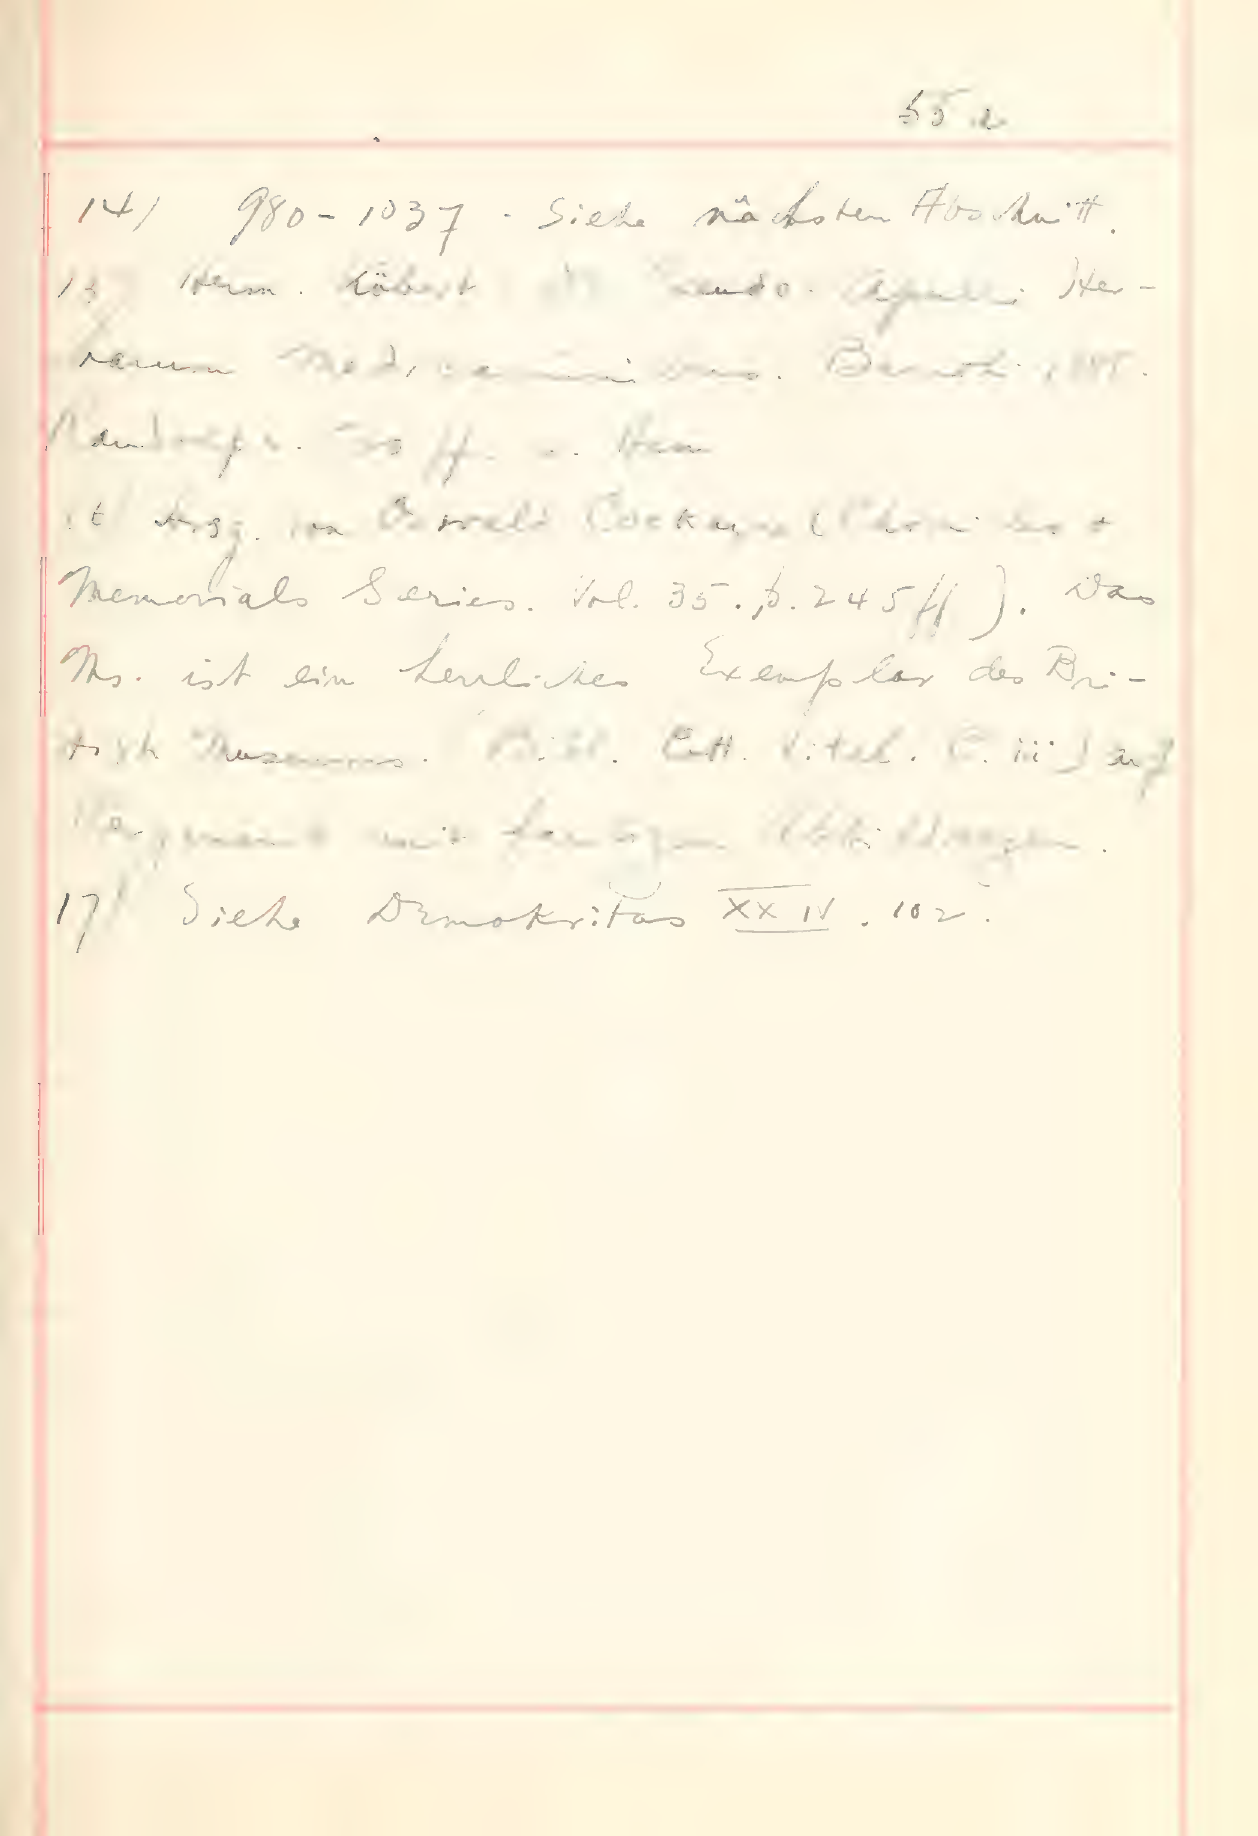 55a
14) 980-1037. Siehe nächsten Abschnitt.
15) Herm. Köbert de Pseudo. Apulei Her-
barum Medicaminibus. Bayreuth 1888.
ff.
Hsg. von Oswald Cockayne (Chronicles +
Memorials Series. Vol. 35. p. 245 ff). Das
Ms. ist ein herrliches Exemplar des Bri-
tish Museums. Bibl. Cott. Vitel. C. iii) auf
Pergament mit farbigen Abbildungen.
17) Siehe Demokritos XXIV. 102.